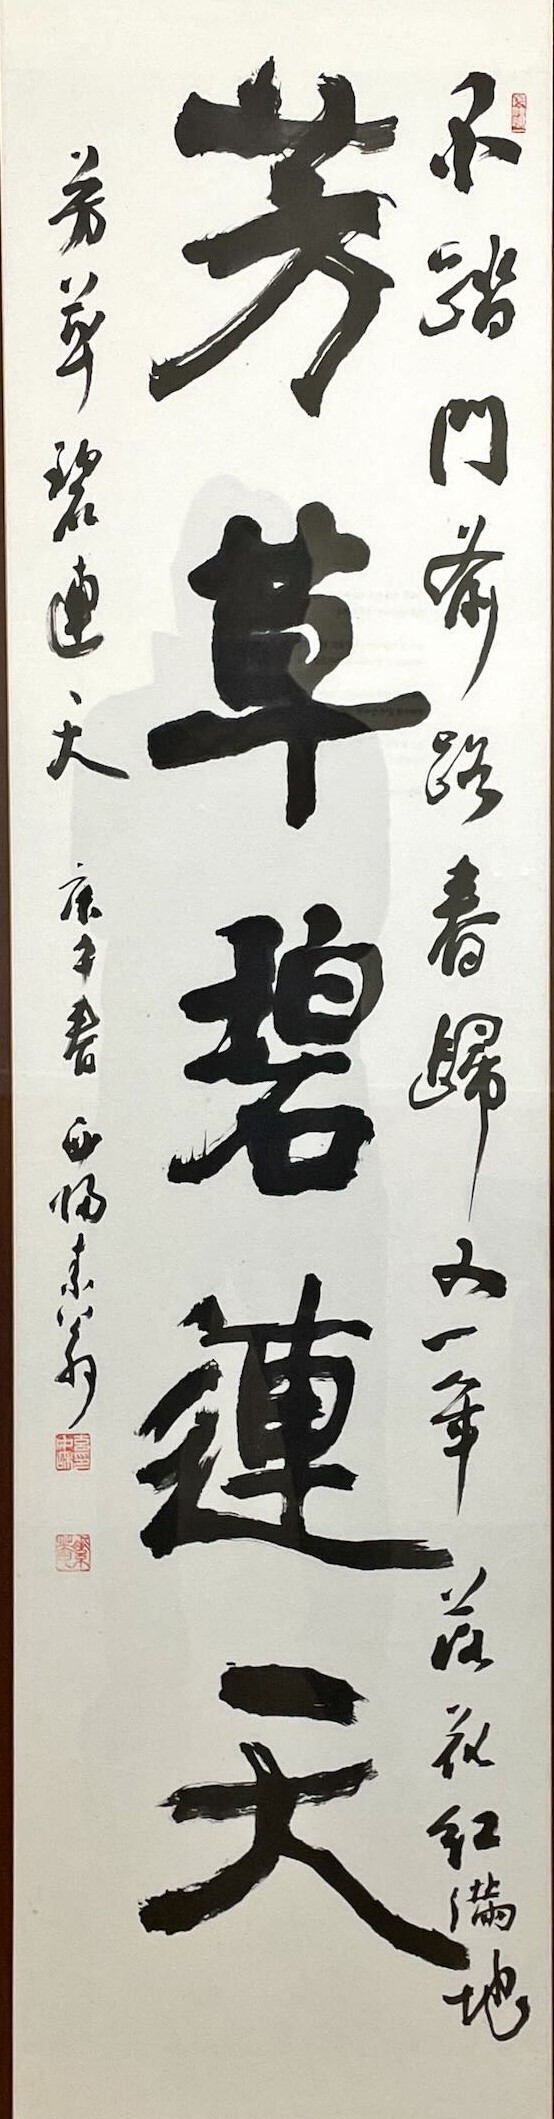 不踏門前路春歸又一年落花紅滿地
芳草碧連天
芳草碧連天 庚午春 素翁